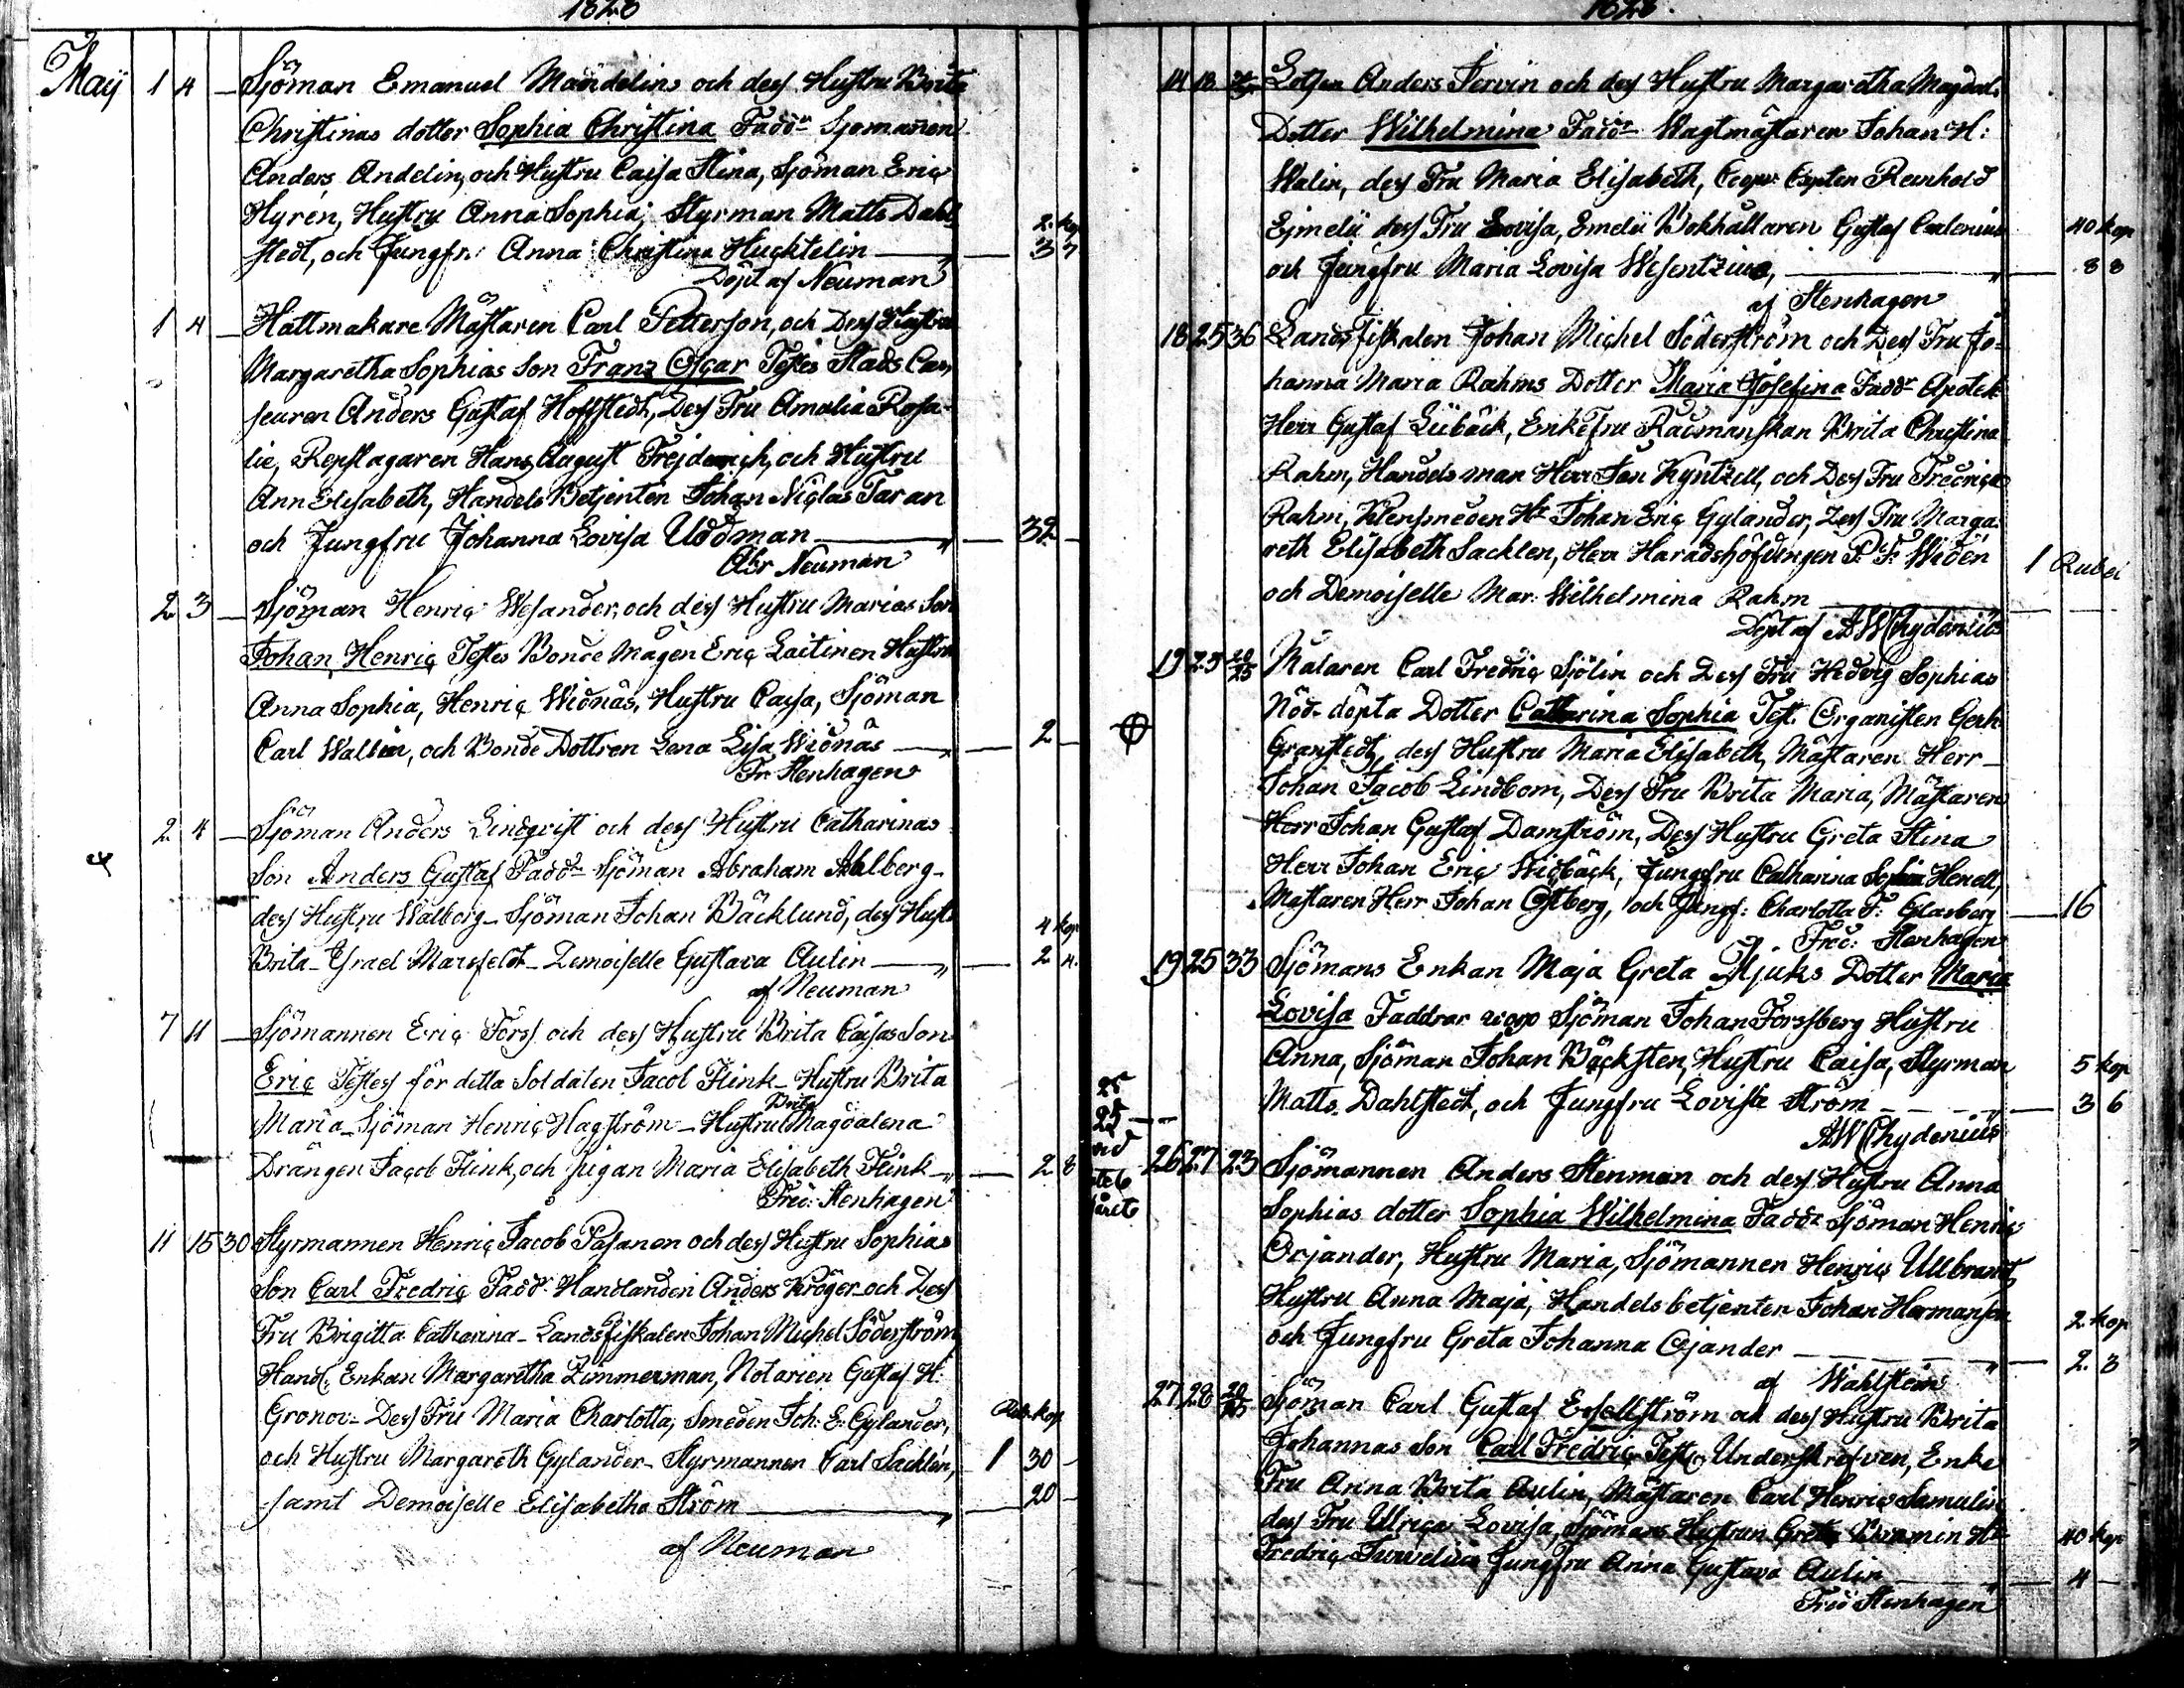 1828
Maij 1 4 — Sjöman Emanuel Mandelins och dess Hustru Brita
Christinas dotter Sophia Christina Faddr Sjömannen
Anders Andelin, och Hustru Caisa Stina, Sjöman Eric
Hyrén, Hustru Anna Sophia, Styrman Matts Dahl
stedt, och Jungfr: Anna Christina Hucktelin — 2 kop 3 7
Döpt af Neuman
1 4 — Hattmakare Mästaren Carl Petterson, och Dess Hustru
Margaretha Sophias Son Franz Oscar Testes Stads Cas
seuren Anders Gustaf Hoffstedt, Dess Fru Amalia Rosa-
lie, Repslagaren Hans August Frejdenrich, och Hustru
Ann Elisabeth, Handels Betjenten Johan Niclas Taran
och Jungfru Johanna Lovisa Uddman — 32 —
Abr Neuman
2 3 — Sjöman Henric Wesander, och dess Hustru Marias Son
Johan Henric Testes Bonde Mågen Eric Laitinen Hustru
Anna Sophia, Henric Widnäs, Hustru Caisa, Sjöman
Carl Wallin, och Bonde Dottren Lena Lisa Widnäs — 2 —
Fr. Stenhagen
2 4 — Sjöman Anders Lindqvist och dess Hustru Catharinas
Son Anders Gustaf Faddr Sjöman Abraham Ahlberg-
dess Hustru Walborg- Sjöman Johan Bäcklund, dess Hust
Brita- Israel Marsfeldt- Demoiselle Gustava Aulin — 4 kop 2 4.
af Neuman
7 11 — Sjömannen Eric Forss och dess Hustru Brita Caisas Son
Eric Testes för detta Soldaten Jacob Flink- Hustru Brita
Maria- Sjöman Henric Hagström- Hustru Brita Magdalena
Drängen Jacob Flink, och pigan Maria Elisabeth Flink — 2 8
Fred: Stenhagen
11 15 30 Styrmannen Henric Jacob Pasanen och dess Hustru Sophias
Son Carl Fredric Faddr Handlanden Anders Kröger- och Dess
Fru Brigitta Catharina- Landsfiskalen Johan Michel Söderström,
Handl. Enkan Margaretha Zimmerman, Notarien Gustaf H:
Gronov- Dess Fru Maria Charlotta, Smeden Joh: E: Gylander,
och Hustru Margareth Gylander- Styrmannen Carl Sacklén, Rub. kop. 1 30 -
samt Demoiselle Elisabetha Ström — 20 -
af Neuman
1828.
14 18 Lotsen Anders Servin och dess Hustru Margaretha Magdal.
Dotter Wilhelmina Faddr Wagtmästaren Johan H:
Walin, dess Fru Maria Elisabeth, Capten Reinhold
Ejmelii dess Fru Lovisa, Emelii Bokhållaren Gustaf
och Jungfru Maria Lovisa Wesentzius, — 40 kop 8 8
af Stenhagen
18 25 36 Landsfiskalen Johan Michel Söderström och Dess Fru Jo-
hanna Maria Rahms Dotter Maria Josefina Faddr Apotek
Herr Gustaf Lübäck, Enkefru Rådmanskan Brita Christina
Rahm, Handelsman Herr Jan Kyntzell, och Dess Fru Fredrica
Rahm, Klensmeden Hr Johan Eric Gylander, Dess Fru Marga
reth Elisabeth Sacklen, Herr Häradshöfdingen P: F: Widén
och Demoiselle Mar: Wilhelmina Rahm — 1 Rubel
Döpt af AW Chydenius
19 23 Målaren Carl Fredric Sjölin och Dess Fru Hedvig Sophias
Nöd-döpta Dotter Catharina Sophia Test. Organisten Gerh
Granstedt, dess Hustru Maria Elisabeth, Mästaren Herr
Johan Jacob Lindbom, Dess Fru Brita Maria, Mästaren
Herr Johan Gustaf Damström, Dess Hustru Greta Stina
Herr Johan Eric Widbäck, Jungfru Catharina Sophia Henell,
Mästaren Herr Johan Östberg, och Jungf: Charlotta F: Glasberg — 16
Fred: Stenhagen
19 25 33 Sjömans Enkan Maja Greta Mjuks Dotter Maria
Lovisa Faddrar Sjöman Johan Forssberg Hustru
Anna, Sjöman Johan Bäcksten, Hustru Caisa, Styrman
Matts Dahlstedt, och Jungfru Lovisa Ström — 5 kop 3 6
AW Chydenius
26 27 23 Sjömannen Anders Stenman och dess Hustru Anna
Sophias dotter Sophia Wilhelmina Faddr Sjöman Henric
Orjander, Hustru Maria, Sjömannen Henric Ullbrandt
Hustru Anna Maja, Handelsbetjenten Johan Hermansson
och Jungfru Greta Johanna Ojander — 2 kop 2. 3
af Wahlstein
27 28 Sjöman Carl Gustaf och dess Hustru Brita
Johannas Son Carl Fredric Test. Underskrefven, Enke
Fru Anna Brita Aulin, Mästaren Carl Henric Samulin
dess Fru Ulrica Lovisa, Sjömans Hustrun Greta Hr
Fredric Jungfru Anna Gustava Aulin — 40 kop 4 —
Fred Stenhagen